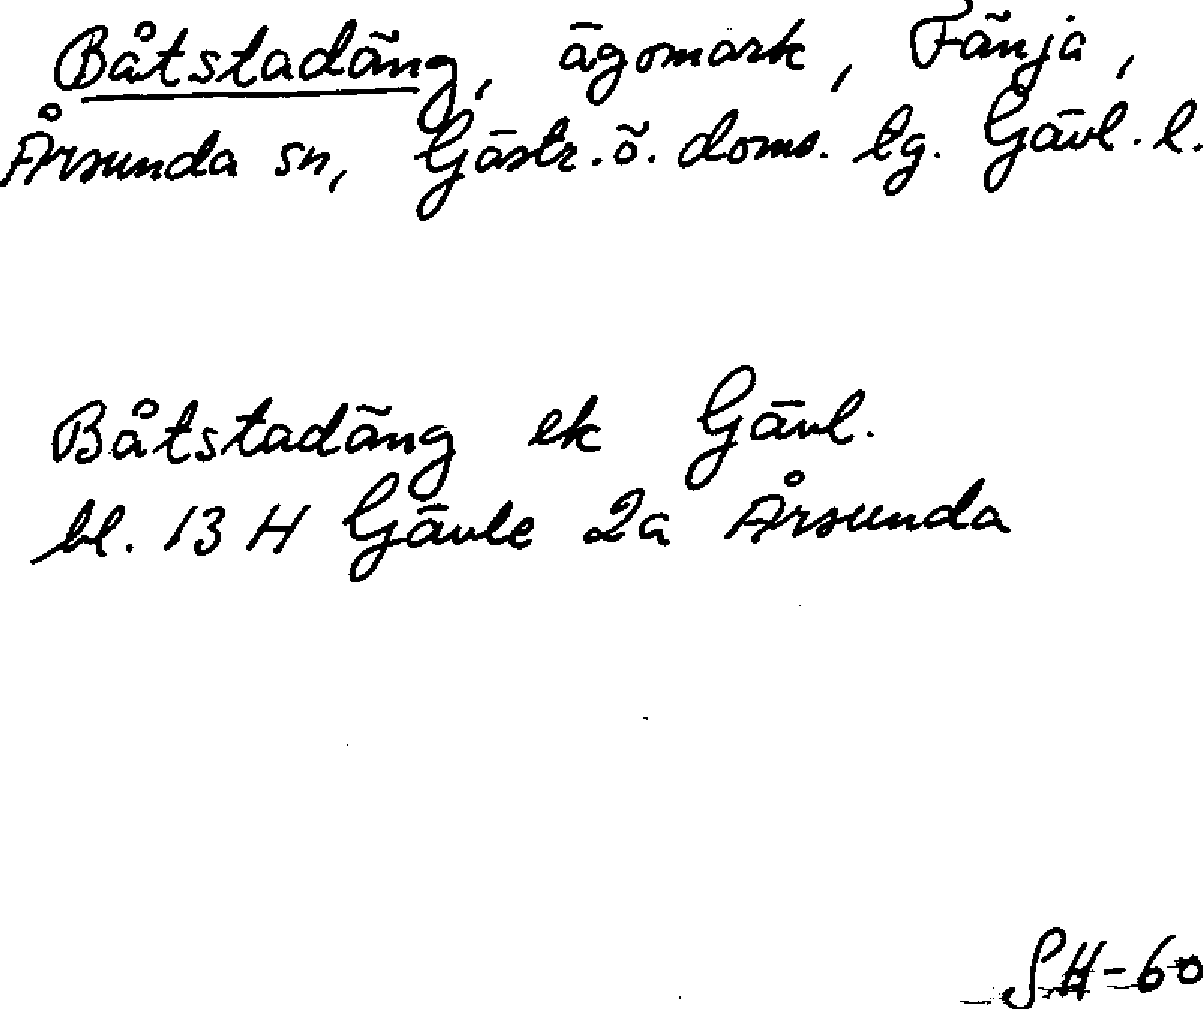 Båtstadäng, ägomark, Fänja,
Årsunda sn, Gästr. ö. doms. tg. Gävl. l.
Båtstadäng ek Gävl.
bl. 13 H Gävle 2a Årsunda
SH-60